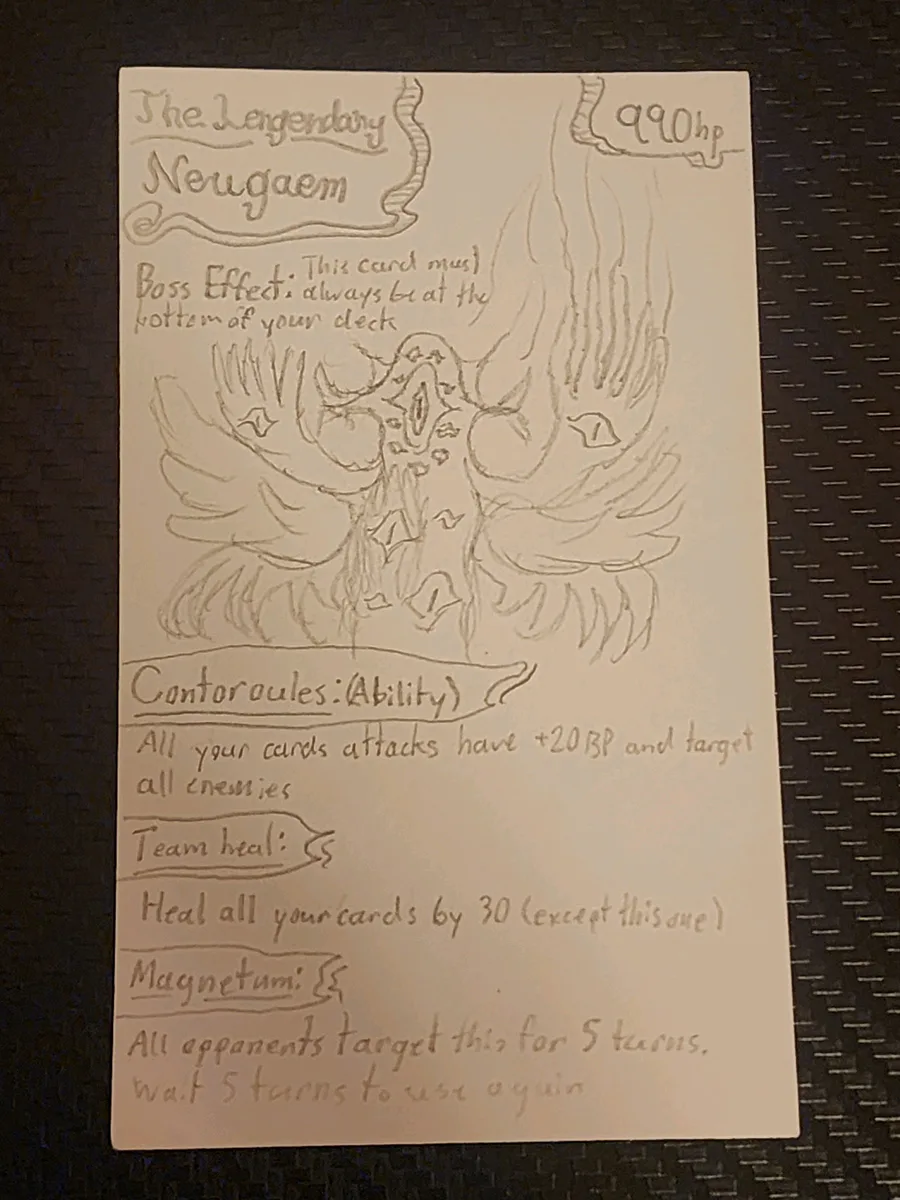 The Lengendary
Neugaem
990hp
Boss Effect: This card must
always be at the
bottom of your deck
Contoroules: (Ability)
All your cards attacks have +20BP and target
all enemies
Team heal:
Heal all your cards by 30 (except this one)
Magnetum:
All opponents target this for 5 turns.
Wait 5 turns to use again